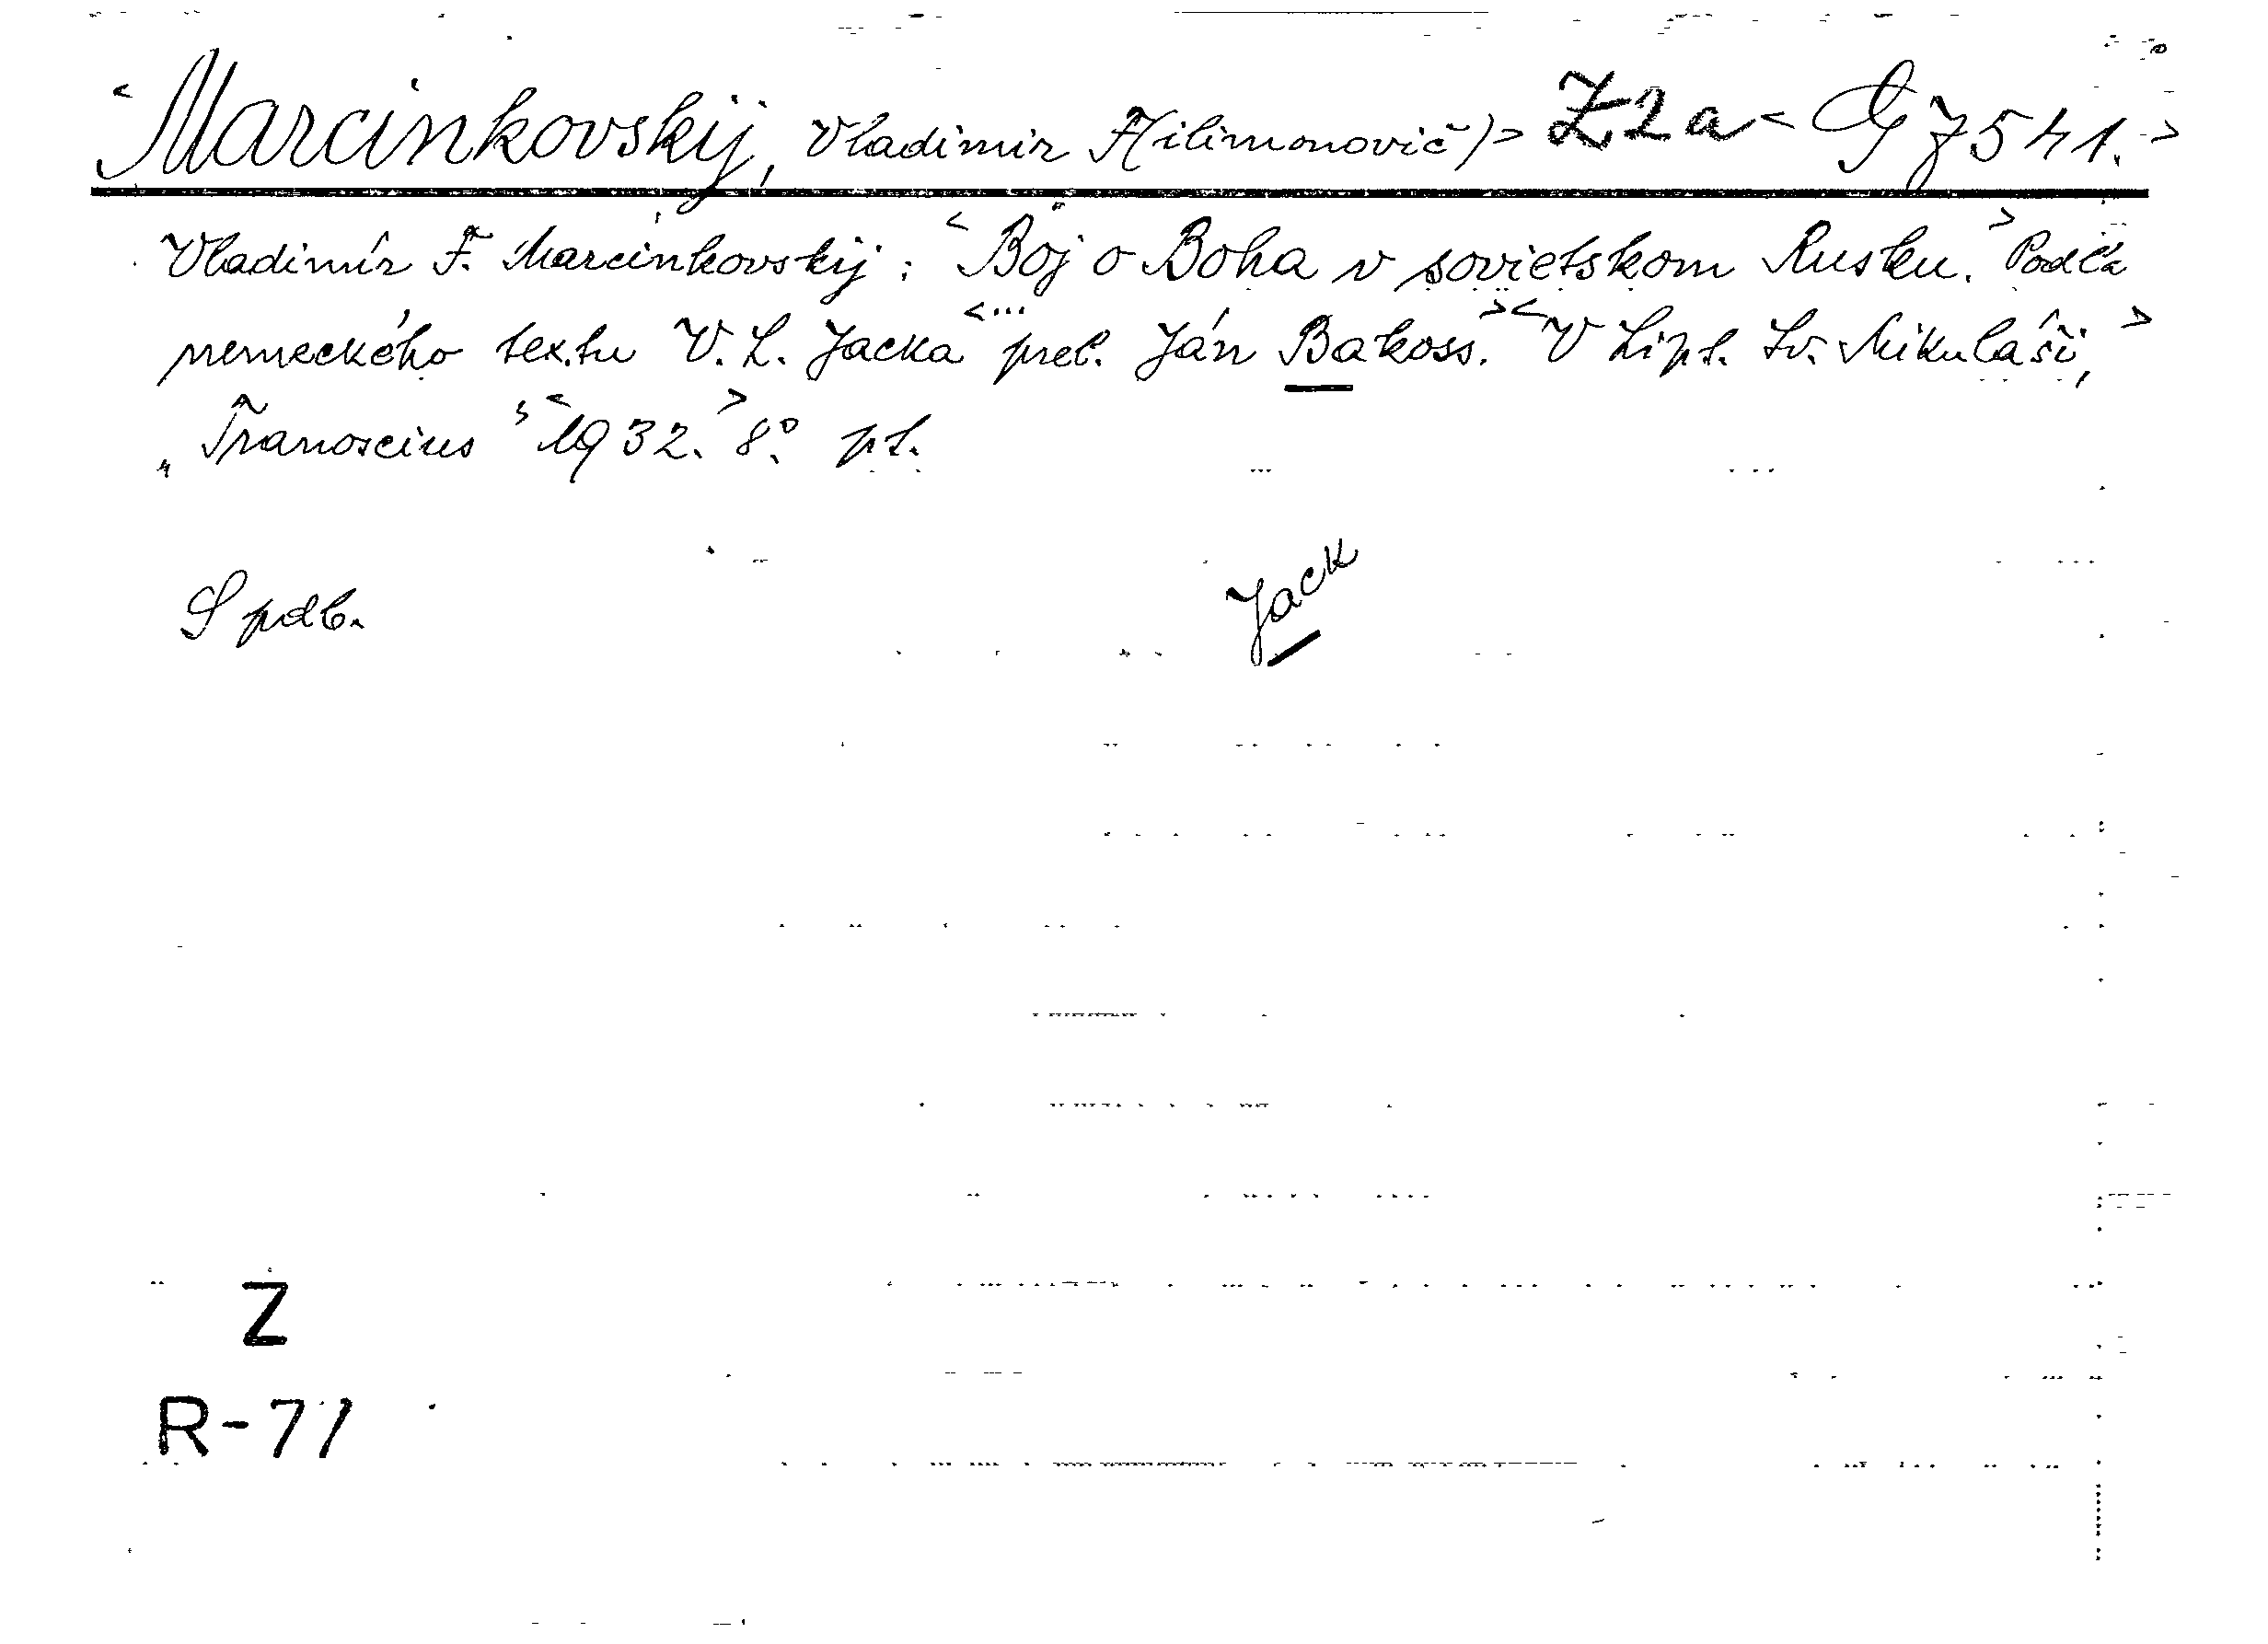 <Marcinkovskij, Vladimir F(ilimonovič)> Z2a <G 7541.>
Vladimír F. Marcinkovskij: <Boj o Boha v sovietskom Rusku.> Podľa
nemeckého textu V. L. Jacka <...prel. Ján Bakoss.> <V Lipt. Sv. Mikuláši,>
„Tranoscius" <1932.> 8° pt.
S pdb.
Jack
Z
R-77